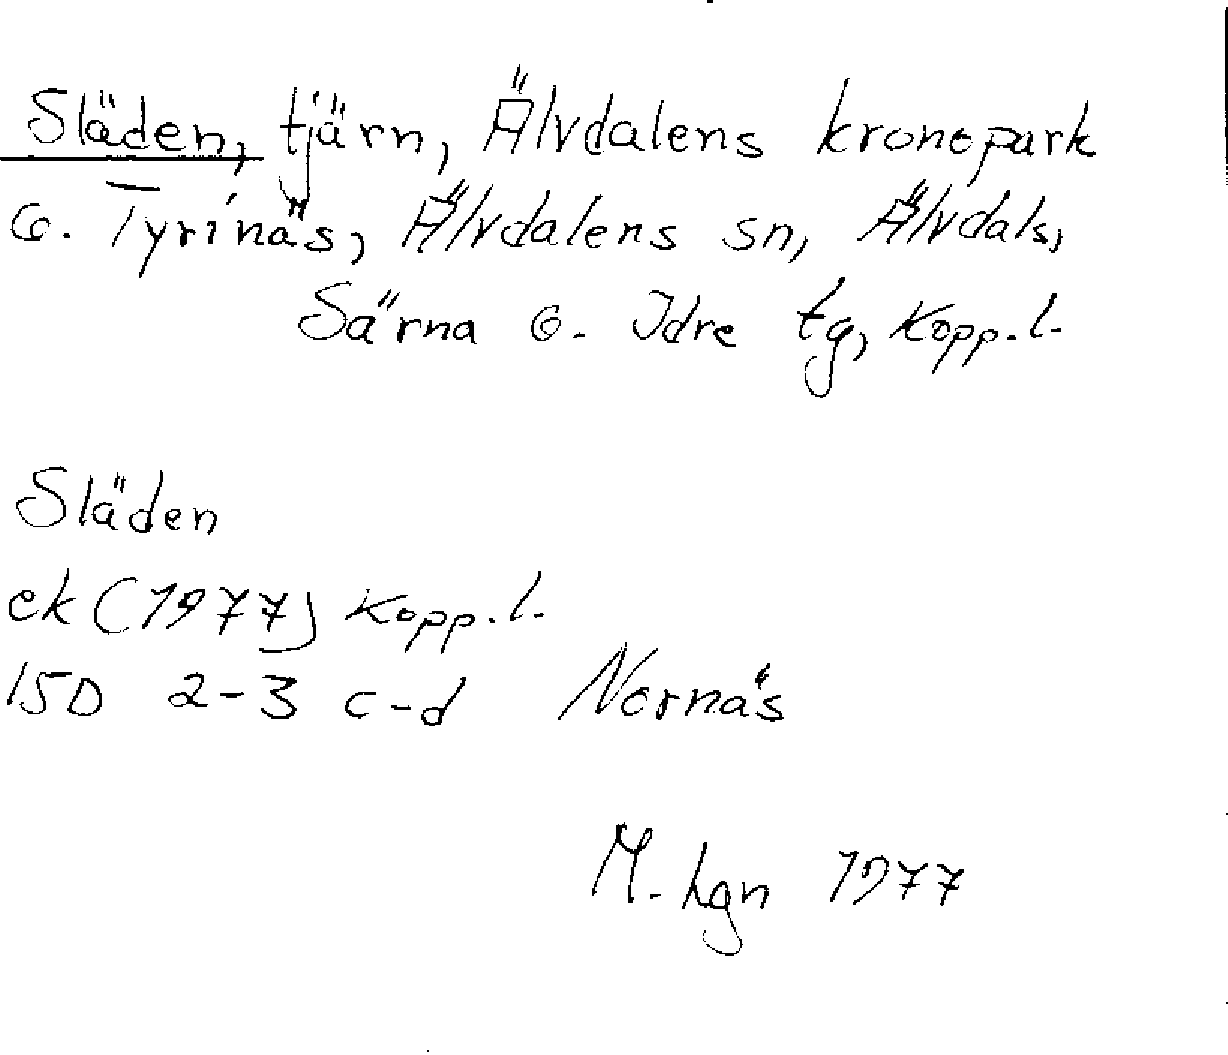 Släden, tjärn, Älvdalens kronopark
o. Tyrinäs, Älvdalens sn, Älvdals,
Särna o. Idre tg, Kopp. l.
Släden
ek (1977) Kopp. l.
15D 2-3 c-d Nornäs
M. hgn 1977